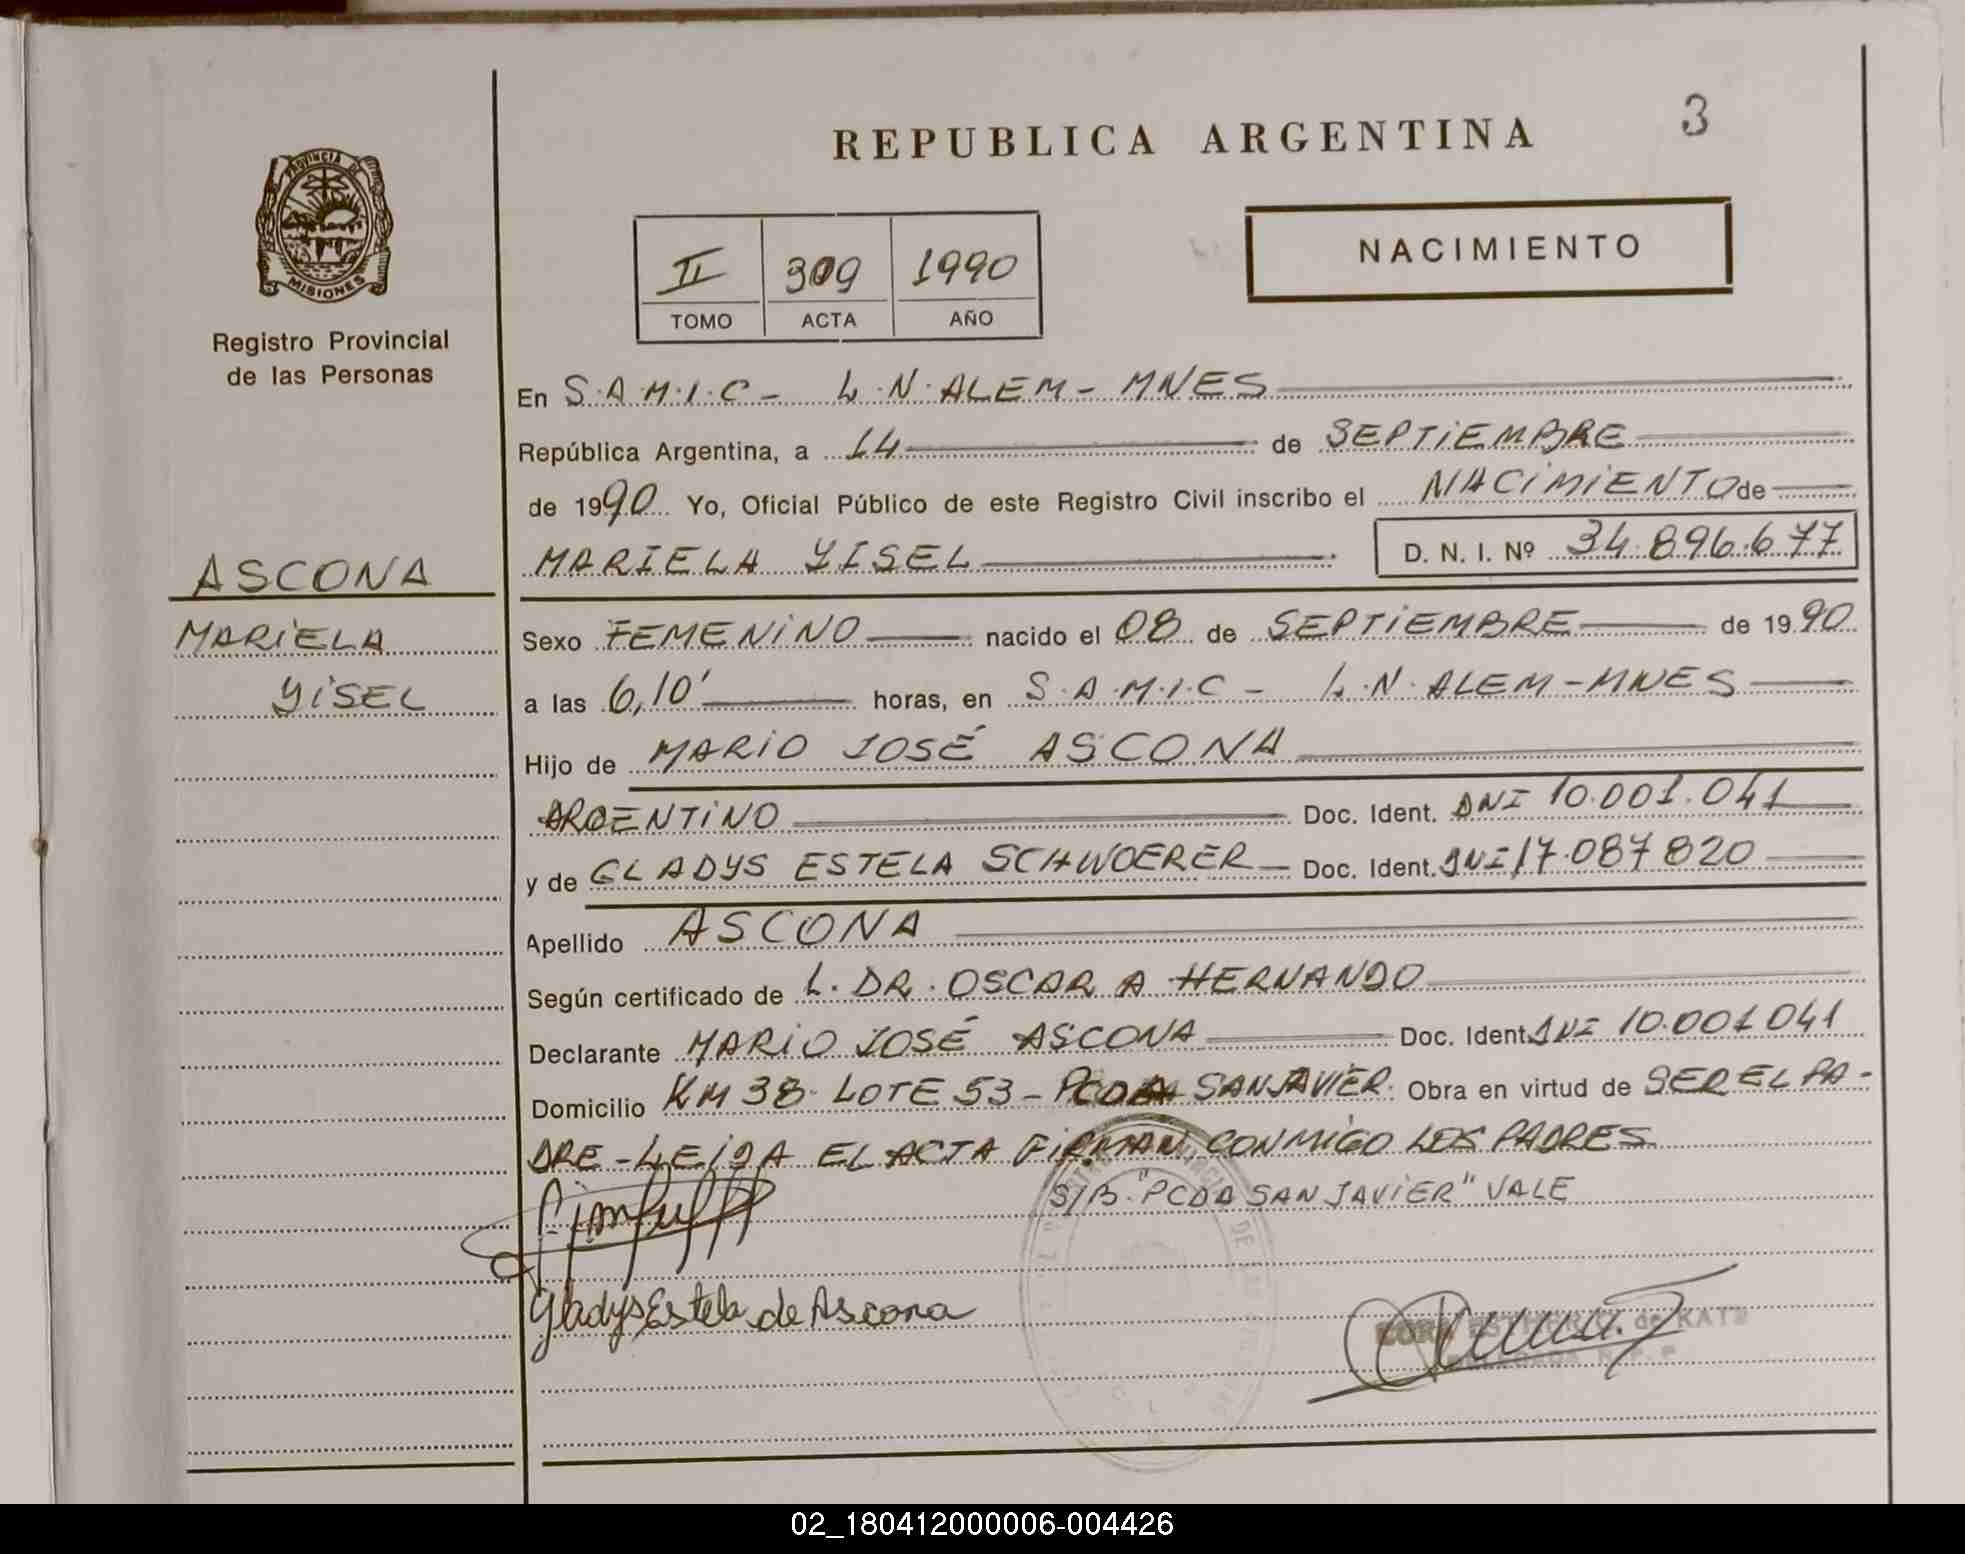 REPUBLICA ARGENTINA
3
PROVINCIA DE
MISIONES
Registro Provincial
de las Personas
NACIMIENTO
II 309 1990
TOMO ACTA AÑO
En S.A.M.I.C - L.N. ALEM - MNES
República Argentina, a 14 de SEPTIEMBRE
de 1990 Yo, Oficial Público de este Registro Civil inscribo el NACIMIENTO de
MARIELA YISEL D. N. I. Nº 34.896.677
ASCONA
MARIELA
YISEL
Sexo FEMENINO nacido el 08 de SEPTIEMBRE de 1990
a las 6,10' horas, en S.A.M.I.C - L.N. ALEM - MNES
Hijo de MARIO JOSÉ ASCONA
ARGENTINO Doc. Ident. DNI 10.001.041
y de GLADYS ESTELA SCHWOERER Doc. Ident. DNI 17.087820
Apellido ASCONA
Según certificado de L. DR. OSCAR A HERNANDO
Declarante MARIO JOSÉ ASCONA Doc. Ident. DNI 10.001041
Domicilio KM 38. LOTE 53 - PCDA SAN JAVIER. Obra en virtud de SER EL PA-
DRE - LEIDA EL ACTA FIRMAN CONMIGO LOS PADRES
S/B "PCDA SAN JAVIER" VALE
Gladys Estela de Ascona
ESTHER de KATZ
02_180412000006-004426